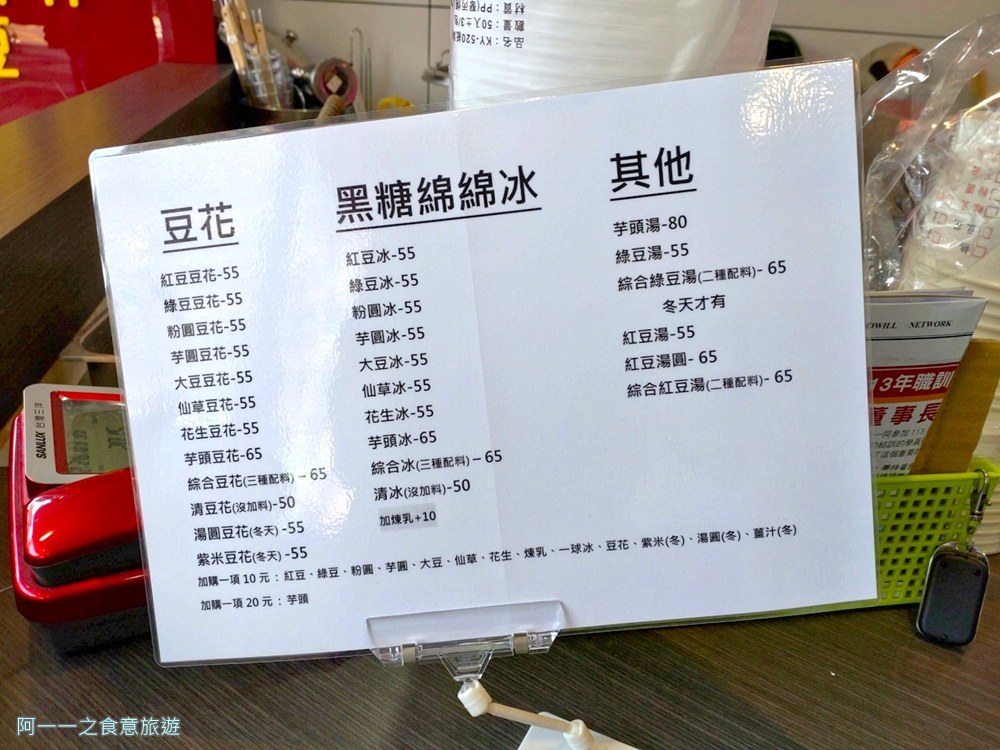 品名：KY-520
數量：50入
材質：PP
豆花
紅豆豆花-55
綠豆豆花-55
粉圓豆花-55
芋圓豆花-55
大豆豆花-55
仙草豆花-55
花生豆花-55
芋頭豆花-65
綜合豆花(三種配料) – 65
清豆花(沒加料)-50
湯圓豆花(冬天) -55
紫米豆花(冬天) -55
黑糖綿綿冰
紅豆冰-55
綠豆冰-55
粉圓冰-55
芋圓冰-55
大豆冰-55
仙草冰-55
花生冰-55
芋頭冰-65
綜合冰(三種配料) – 65
清冰(沒加料)-50
加煉乳+10
其他
芋頭湯-80
綠豆湯-55
綜合綠豆湯(二種配料)- 65
冬天才有
紅豆湯-55
紅豆湯圓- 65
綜合紅豆湯(二種配料)- 65
加購一項 10 元：紅豆、綠豆、粉圓、芋圓、大豆、仙草、花生、煉乳、一球冰、豆花、紫米(冬)、湯圓(冬)、薑汁(冬)
加購一項 20 元：芋頭
SANLUX 台灣三洋
WILL NETWORK
13年職訓
董事長
阿一一之食意旅遊